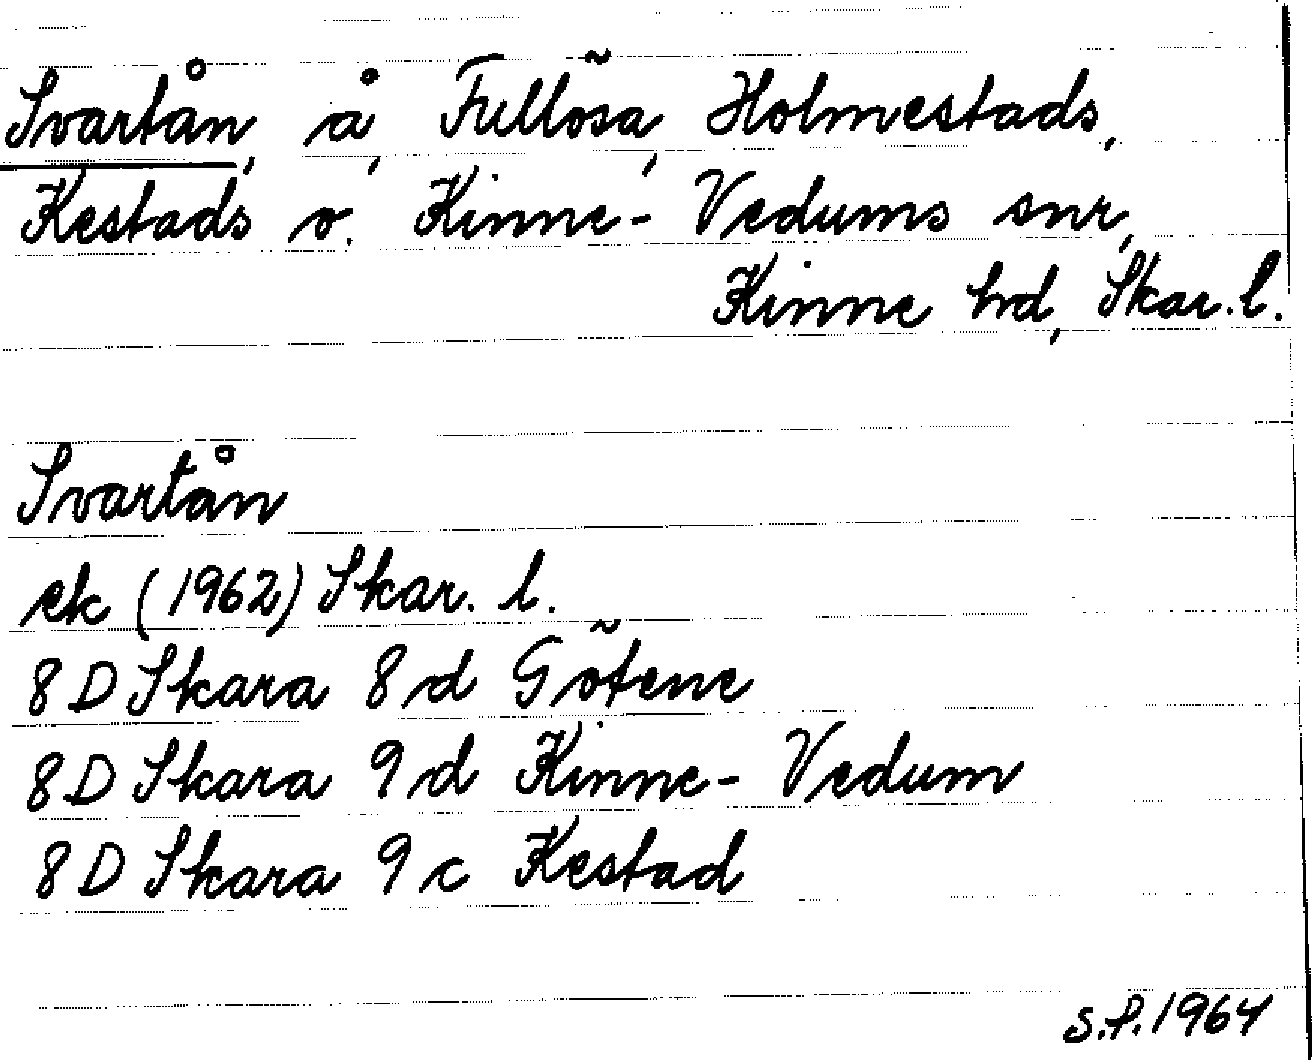 Svartån, å, Fullösa, Holmestads,
Kestads o. Kinne-Vedums snr,
Kinne hd, Skar. l.
Svartån
ek (1962) Skar. l.
8 D Skara 8 d Götene
8 D Skara 9 d Kinne-Vedum
8 D Skara 9 c Kestad
S.P. 1964